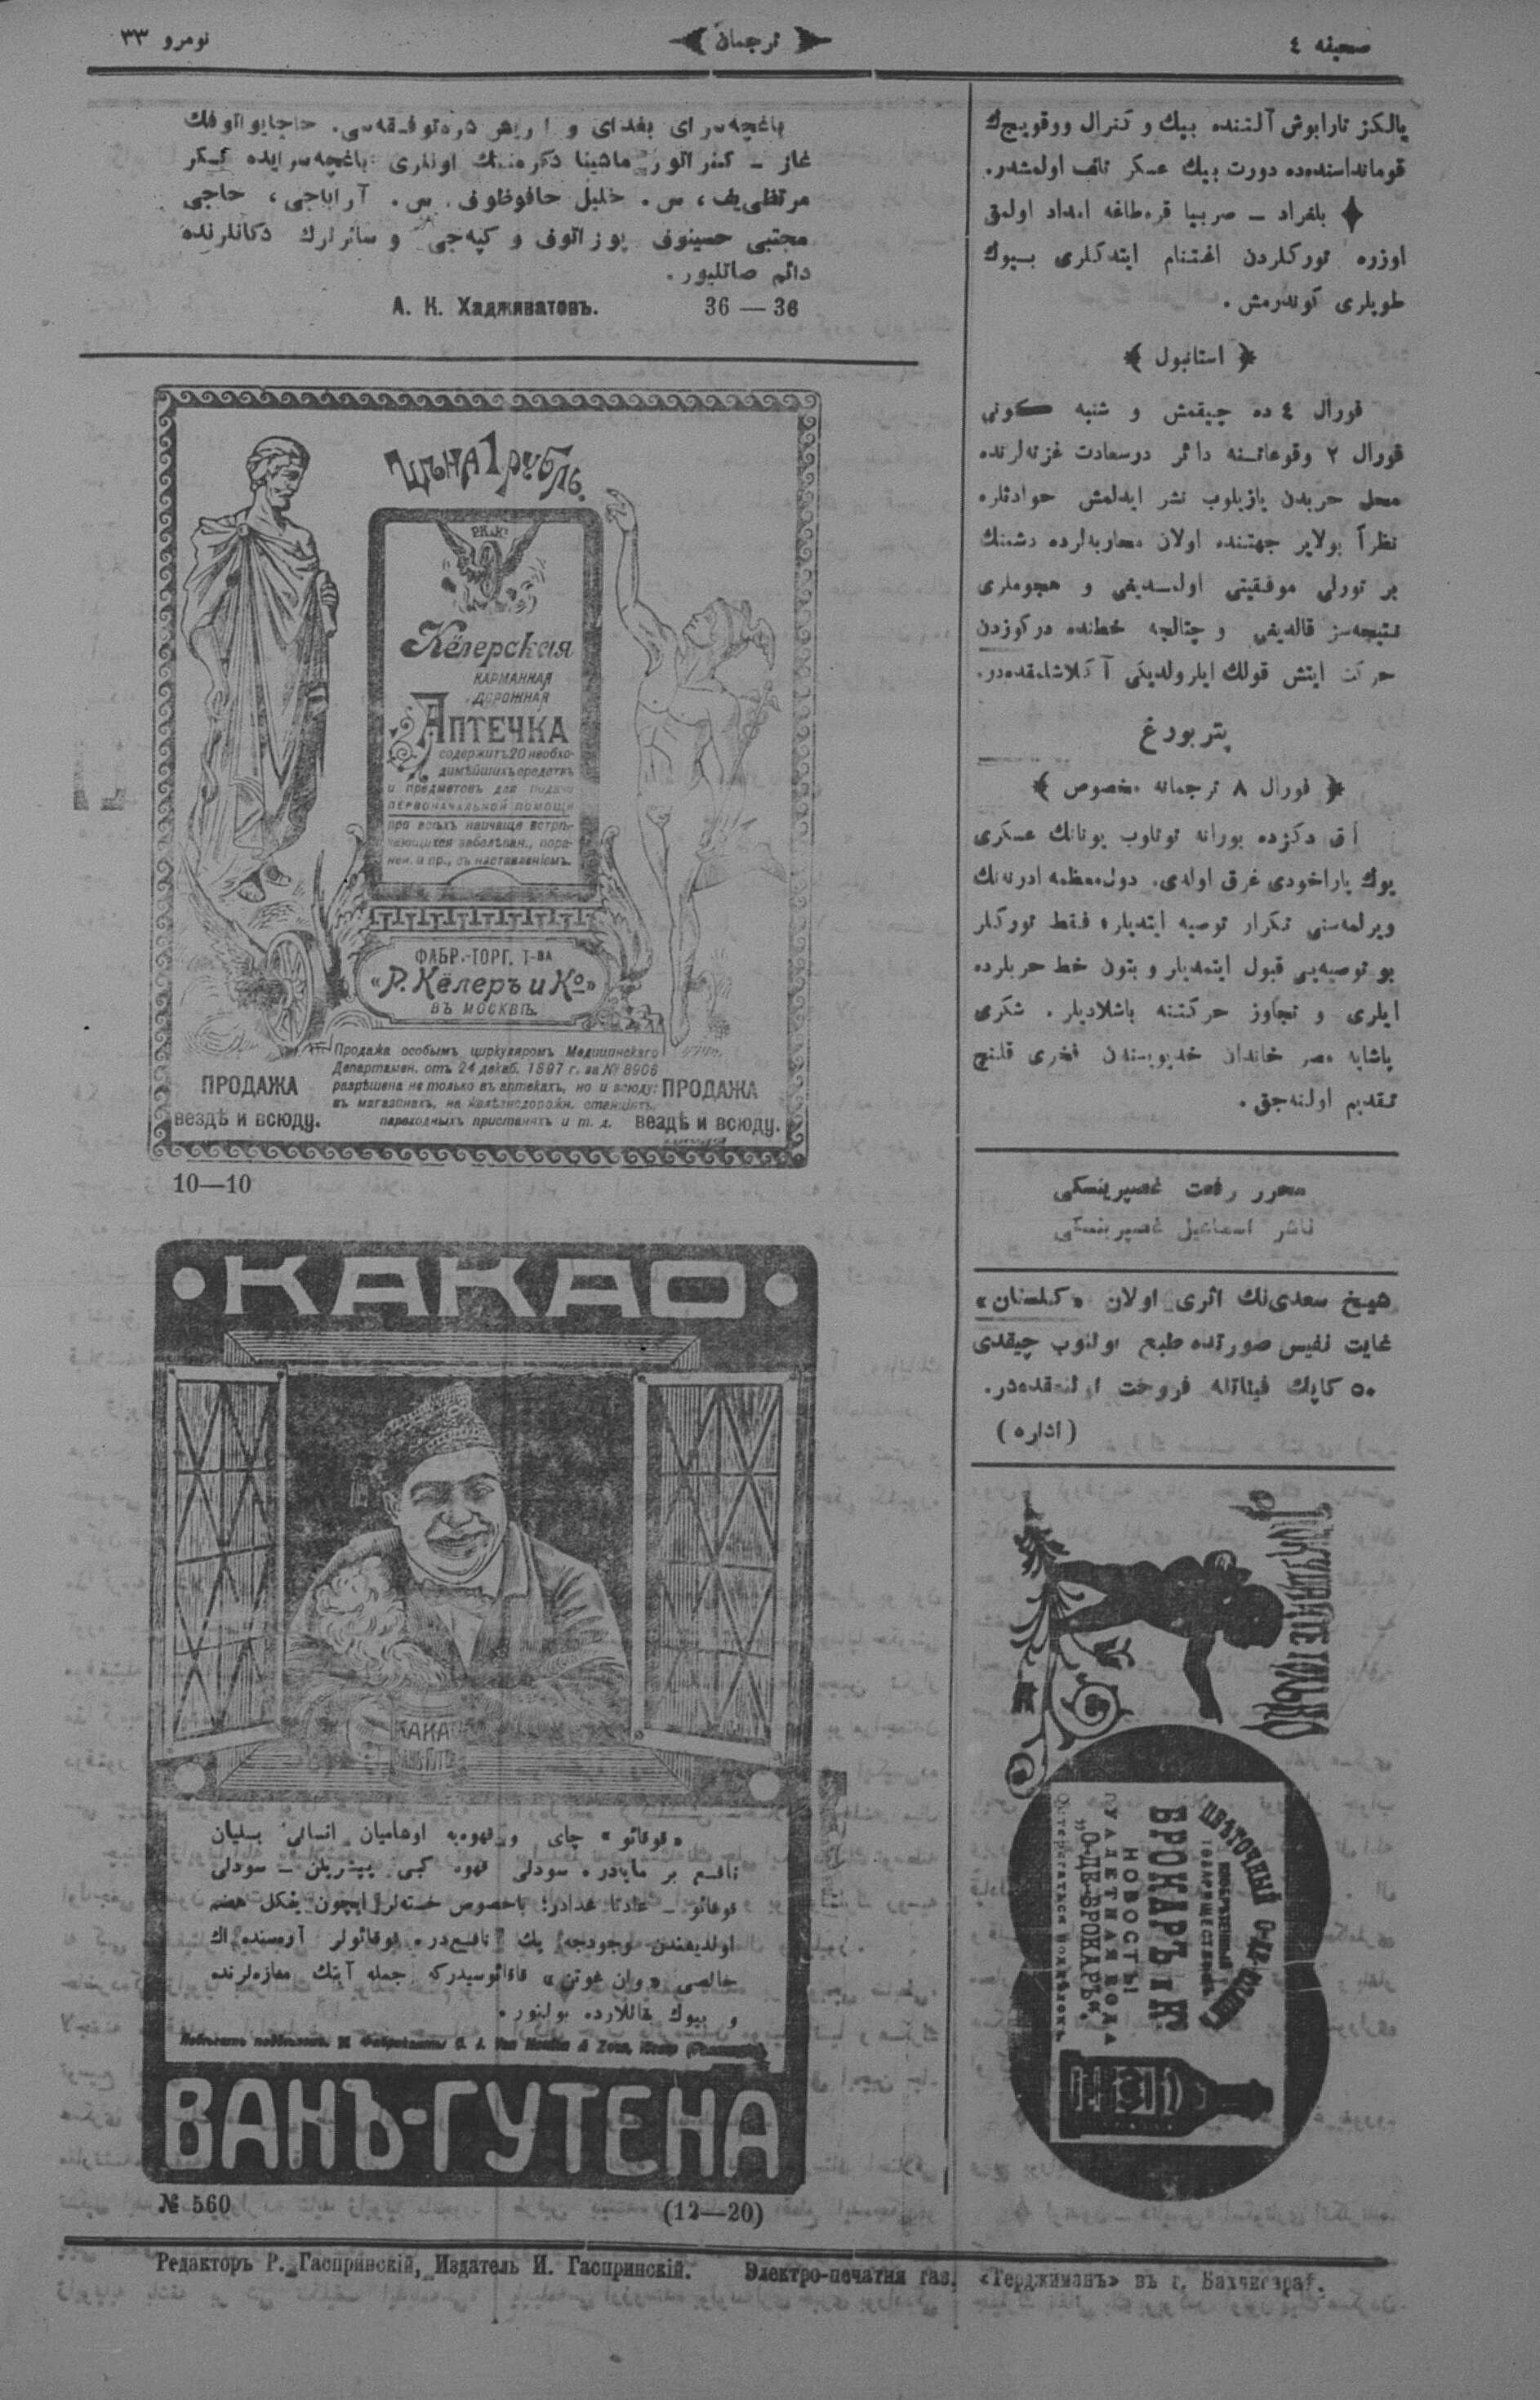 صحیفه ٤
﴿ ترجمان ﴾
نومرو ٣٣
یالكز تارابوش آلتنده بیك و كنرال ووقویچك
قومانداسنده‌ده دورت بیك عسكر تلف اولمشدر.
بلغراد ــ صربیا قره‌طاغه امداد اولمق
اوزره توركلردن اغتنام ایتدكلری بیوك
طوپلری كوندرمش.
﴿ استانبول ﴾
فورال ٤ ده چیقمش و شنبه كونی
فورال ٢ وقوعاتنه دائر درسعادت غزته‌لرنده
محل حربدن یازیلوب نشر ایدلمش حوادثلره
نظراً بولایر جهتنده اولان محاربه‌لرده دشمنك
بر تورلی موفقیتی اولمدیغی و هجوملری
نتیجه‌سز قالدیغی و چتالجه خطنده دركوزدن
حركت ایتش قولك ایلرولدیكی آكلاشلمقده‌در.
پتربورغ
﴿ فورال ٨ ترجمانه مخصوص ﴾
آق دكزده بورانه توتلوب یونانك عسكری
یوك پاراخودی غرق اولدی. دول معظمه ادرنه‌نك
ویرلمه‌سنی تكرار توصیه ایتدیلر، فقط توركلر
بو توصیه‌یی قبول ایتمدیلر و بتون خط حربلرده
ایلری و تجاوز حركتنه باشلادیلر. شكری
پاشایه مصر خاندان خدیویسندن فخری قلنج
تقدیم اولنه‌جق.
محرر رفعت غصپرینسكی
ناشر اسماعیل غصپرینسكی
شیخ سعدی‌نك اثری اولان «كلستان»
غایت نفیس صورتده طبع اولنوب چیقدی
٥٠ كاپك فیئاتله فروخت اولنمقده‌در.
(اداره)
ТОЛЬКО
ЦВѢТОЧНЫЙ О-ДЕ-КОЛОНЪ
ТОВАРИЩЕСТВА
БРОКАРЪ и К°
НОВОСТЬ!
ТУАЛЕТНАЯ ВОДА
„О-ДЕ-БРОКАРЪ“.
Остерегаться поддѣлокъ
باغچه‌سرای بغدای و اریش دره‌توفیقه‌سی. حاجایواتوفك
غاز ــ كنراتور ماشینا دكرمننك اونلری باغچه‌سرایده عسكر
مرتضی‌یف، س. خلیل حافوظوف، س. آراباجی، حاجی
مجتبی حسینوف پوزاتوف و كپه‌جی و سائرلرك دكانلرنده
دائم صاتلیور.
36 — 36
А. К. Хадживатовъ.
ЦѢНА 1 РУБЛЬ.
Р.К.&К°
Кёлерская
КАРМАННАЯ
ДОРОЖНАЯ
АПТЕЧКА
содержитъ 20 необхо-
димѣйшихъ средствъ
и предметовъ для подачи
ПЕРВОНАЧАЛЬНОЙ ПОМОЩИ
при всѣхъ наичаще встрѣ-
чающихся заболѣван., пора-
нен. и пр., съ наставленіемъ.
ФАБР.-ТОРГ. Т-ВА
«Р. Кёлеръ и К°»
ВЪ МОСКВѢ.
Продажа особымъ циркуляромъ Медицинскаго
Департамен. отъ 24 декаб. 1897 г. за № 8906
разрѣшена не только въ аптекахъ, но и всюду:
въ магазинахъ, на желѣзнодорожн. станціяхъ,
пароходныхъ пристаняхъ и т. д.
ПРОДАЖА
вездѣ и всюду.
ПРОДАЖА
вездѣ и всюду.
10—10
КАКАО
КАКАО
«قوقائو» چای و قهوه‌یه اوشامیان انسانی بسلیان
نافع بر مایادر، سودلی قهوه كبی پیشریلن ــ سودلی
قوقائو ــ عادتا غدادر؛ باخصوص خسته‌لر ایچون یكل هضم
اولدیغندن وجودجه پك نافع‌در. قوقائولر آره‌سنده اك
خالصی «وان غوتن» قاقائوسیدركه جمله آپتك مغازه‌لرنده
و بیوك بقاللارده بولنور.
Van Houten & Zoon,
ВАНЪ-ГУТЕНА
№ 560
(12—20)
Редакторъ Р. Гаспринскій, Издатель И. Гаспринскій. Электро-печатня газ. «Терджиманъ» въ г. Бахчисараѣ.